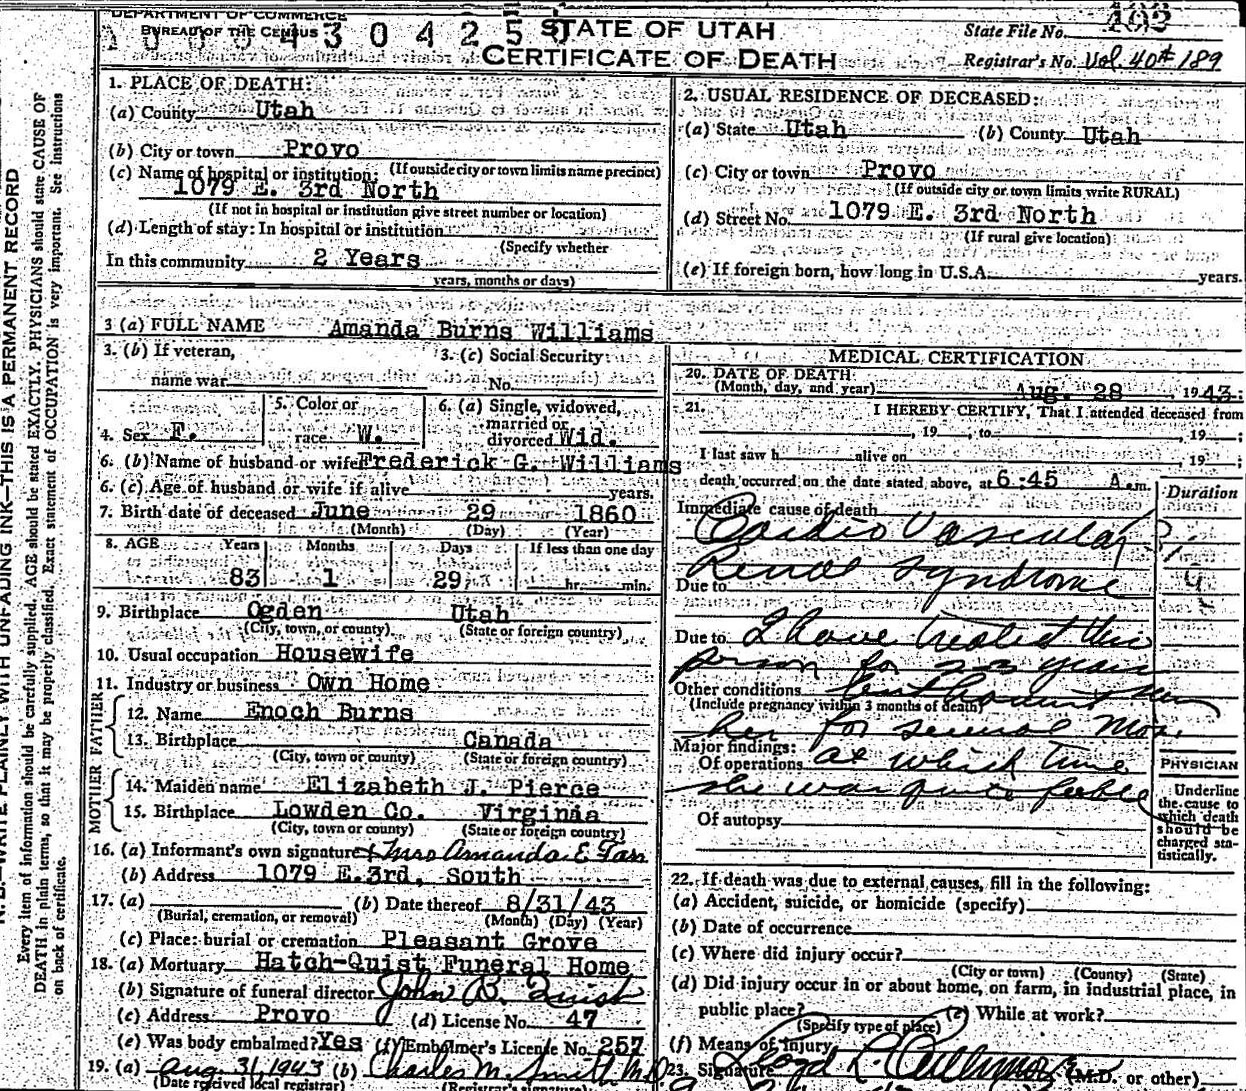 DEPARTMENT OF COMMERCE
BUREAU OF THE CENSUS
STATE OF UTAH
CERTIFICATE OF DEATH
State File No. 402
Registrar's No. Vol. 40# 189
1. PLACE OF DEATH:
(a) County Utah
(b) City or town Provo
(If outside city or town limits name precinct)
(c) Name of hospital or institution:
1079 E. 3rd North
(If not in hospital or institution give street number or location)
(d) Length of stay: In hospital or institution
(Specify whether
In this community 2 Years
years, months or days)
2. USUAL RESIDENCE OF DECEASED:
(a) State Utah (b) County Utah
(c) City or town Provo
(If outside city or town limits write RURAL)
(d) Street No. 1079 E. 3rd North
(If rural give location)
(e) If foreign born, how long in U.S.A. years.
3 (a) FULL NAME Amanda Burns Williams
3. (b) If veteran, 3. (c) Social Security
name war No.
4. Sex F. 5. Color or race W. 6. (a) Single, widowed, married or divorced Wid.
6. (b) Name of husband or wife Frederick G. Williams
6. (c) Age of husband or wife if alive years.
7. Birth date of deceased June 29 1860
(Month) (Day) (Year)
8. AGE Years Months Days If less than one day
83 1 29 hr. min.
9. Birthplace Ogden Utah
(City, town, or county) (State or foreign country)
10. Usual occupation Housewife
11. Industry or business Own Home
FATHER
12. Name Enoch Burns
13. Birthplace Canada
(City, town or county) (State or foreign country)
MOTHER
14. Maiden name Elizabeth J. Pierce
15. Birthplace Lowden Co. Virginia
(City, town or county) (State or foreign country)
16. (a) Informant's own signature Mrs Amanda E
(b) Address 1079 E.3rd, South
17. (a) (b) Date thereof 8/31/43
(Burial, cremation, or removal) (Month) (Day) (Year)
(c) Place: burial or cremation Pleasant Grove
18. (a) Mortuary Hatch-Quist Funeral Home
(b) Signature of funeral director John B. Quist
(c) Address Provo (d) License No. 47
(e) Was body embalmed? Yes (f) Embalmer's License No. 257
19. (a) Aug. 31, 1943 (b) Charles M. Smith M.D.
(Date received local registrar) (Registrar's signature)
MEDICAL CERTIFICATION
20. DATE OF DEATH
(Month, day, and year) Aug. 28, 1943:
21. I HEREBY CERTIFY, That I attended deceased from
, 19 , to , 19 ;
I last saw h alive on , 19 ;
death occurred on the date stated above, at 6:45 A.m.
Duration
Immediate cause of death
Cardio Vascular
Renal Syndrome
Due to
Due to I have treated this
person for years
Other conditions
(Include pregnancy within 3 months of death)
her for several Mos.
Major findings:
Of operations at which time
she was quite feeble
Of autopsy
PHYSICIAN
Underline the cause to which death should be charged statistically.
22. If death was due to external causes, fill in the following:
(a) Accident, suicide, or homicide (specify)
(b) Date of occurrence
(c) Where did injury occur?
(City or town) (County) (State)
(d) Did injury occur in or about home, on farm, in industrial place, in
public place? (e) While at work?
(Specify type of place)
(f) Means of injury
23. Signature Lloyd L. Cullimore (M.D. or other)
WRITE PLAINLY WITH UNFADING INK—THIS IS A PERMANENT RECORD
Every item of information should be carefully supplied. AGE should be stated EXACTLY. PHYSICIANS should state CAUSE OF
DEATH in plain terms, so that it may be properly classified. Exact statement of OCCUPATION is very important. See instructions
on back of certificate.